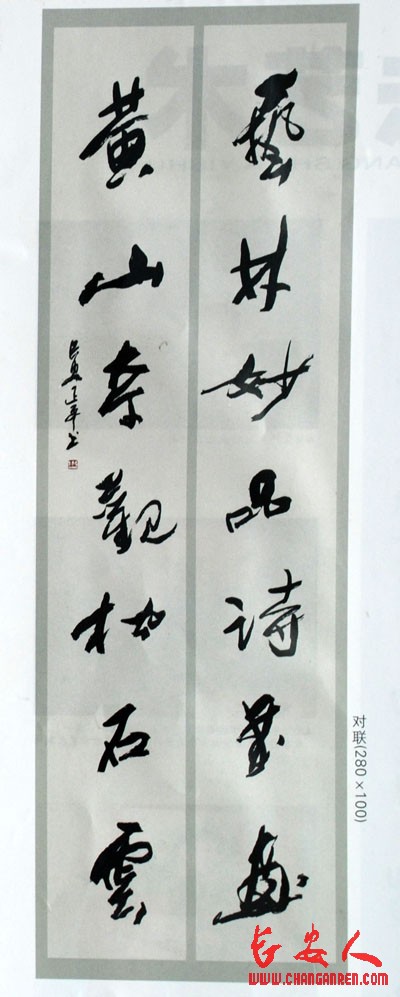 藝林妙品詩書畫
黃山奇觀松石雲
对联(280×100)
长安人
www.CHANGANREN.com